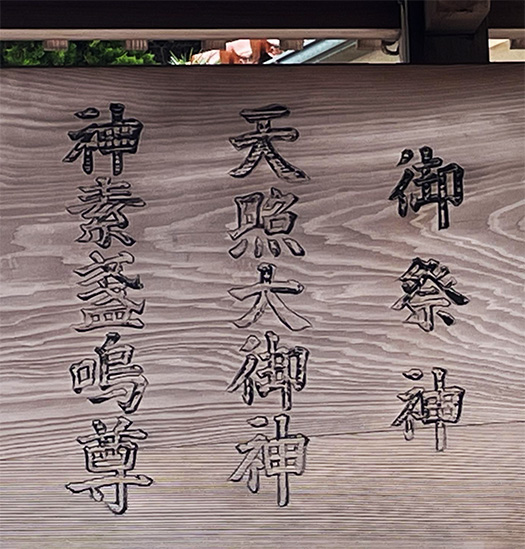 御祭神
天照大御神
神素盞嗚尊